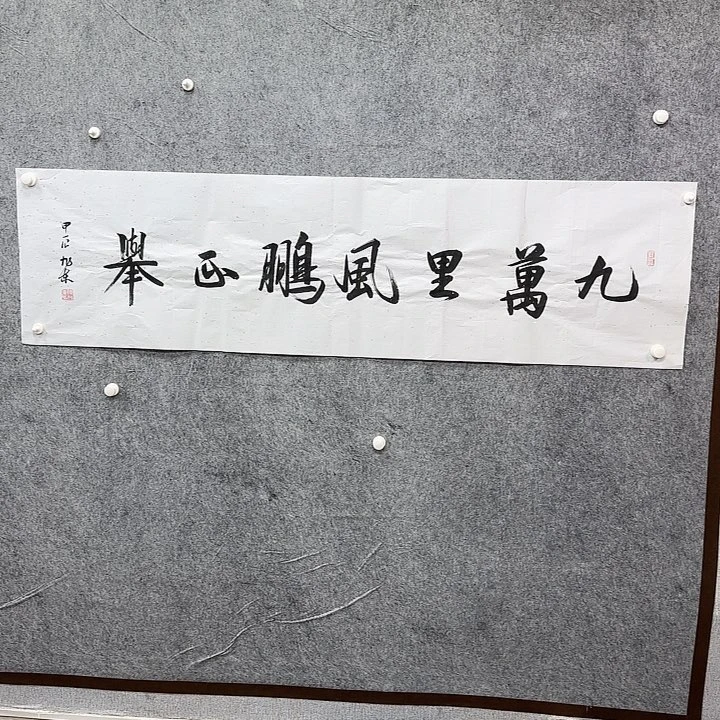 九萬里風鵬正舉
甲辰